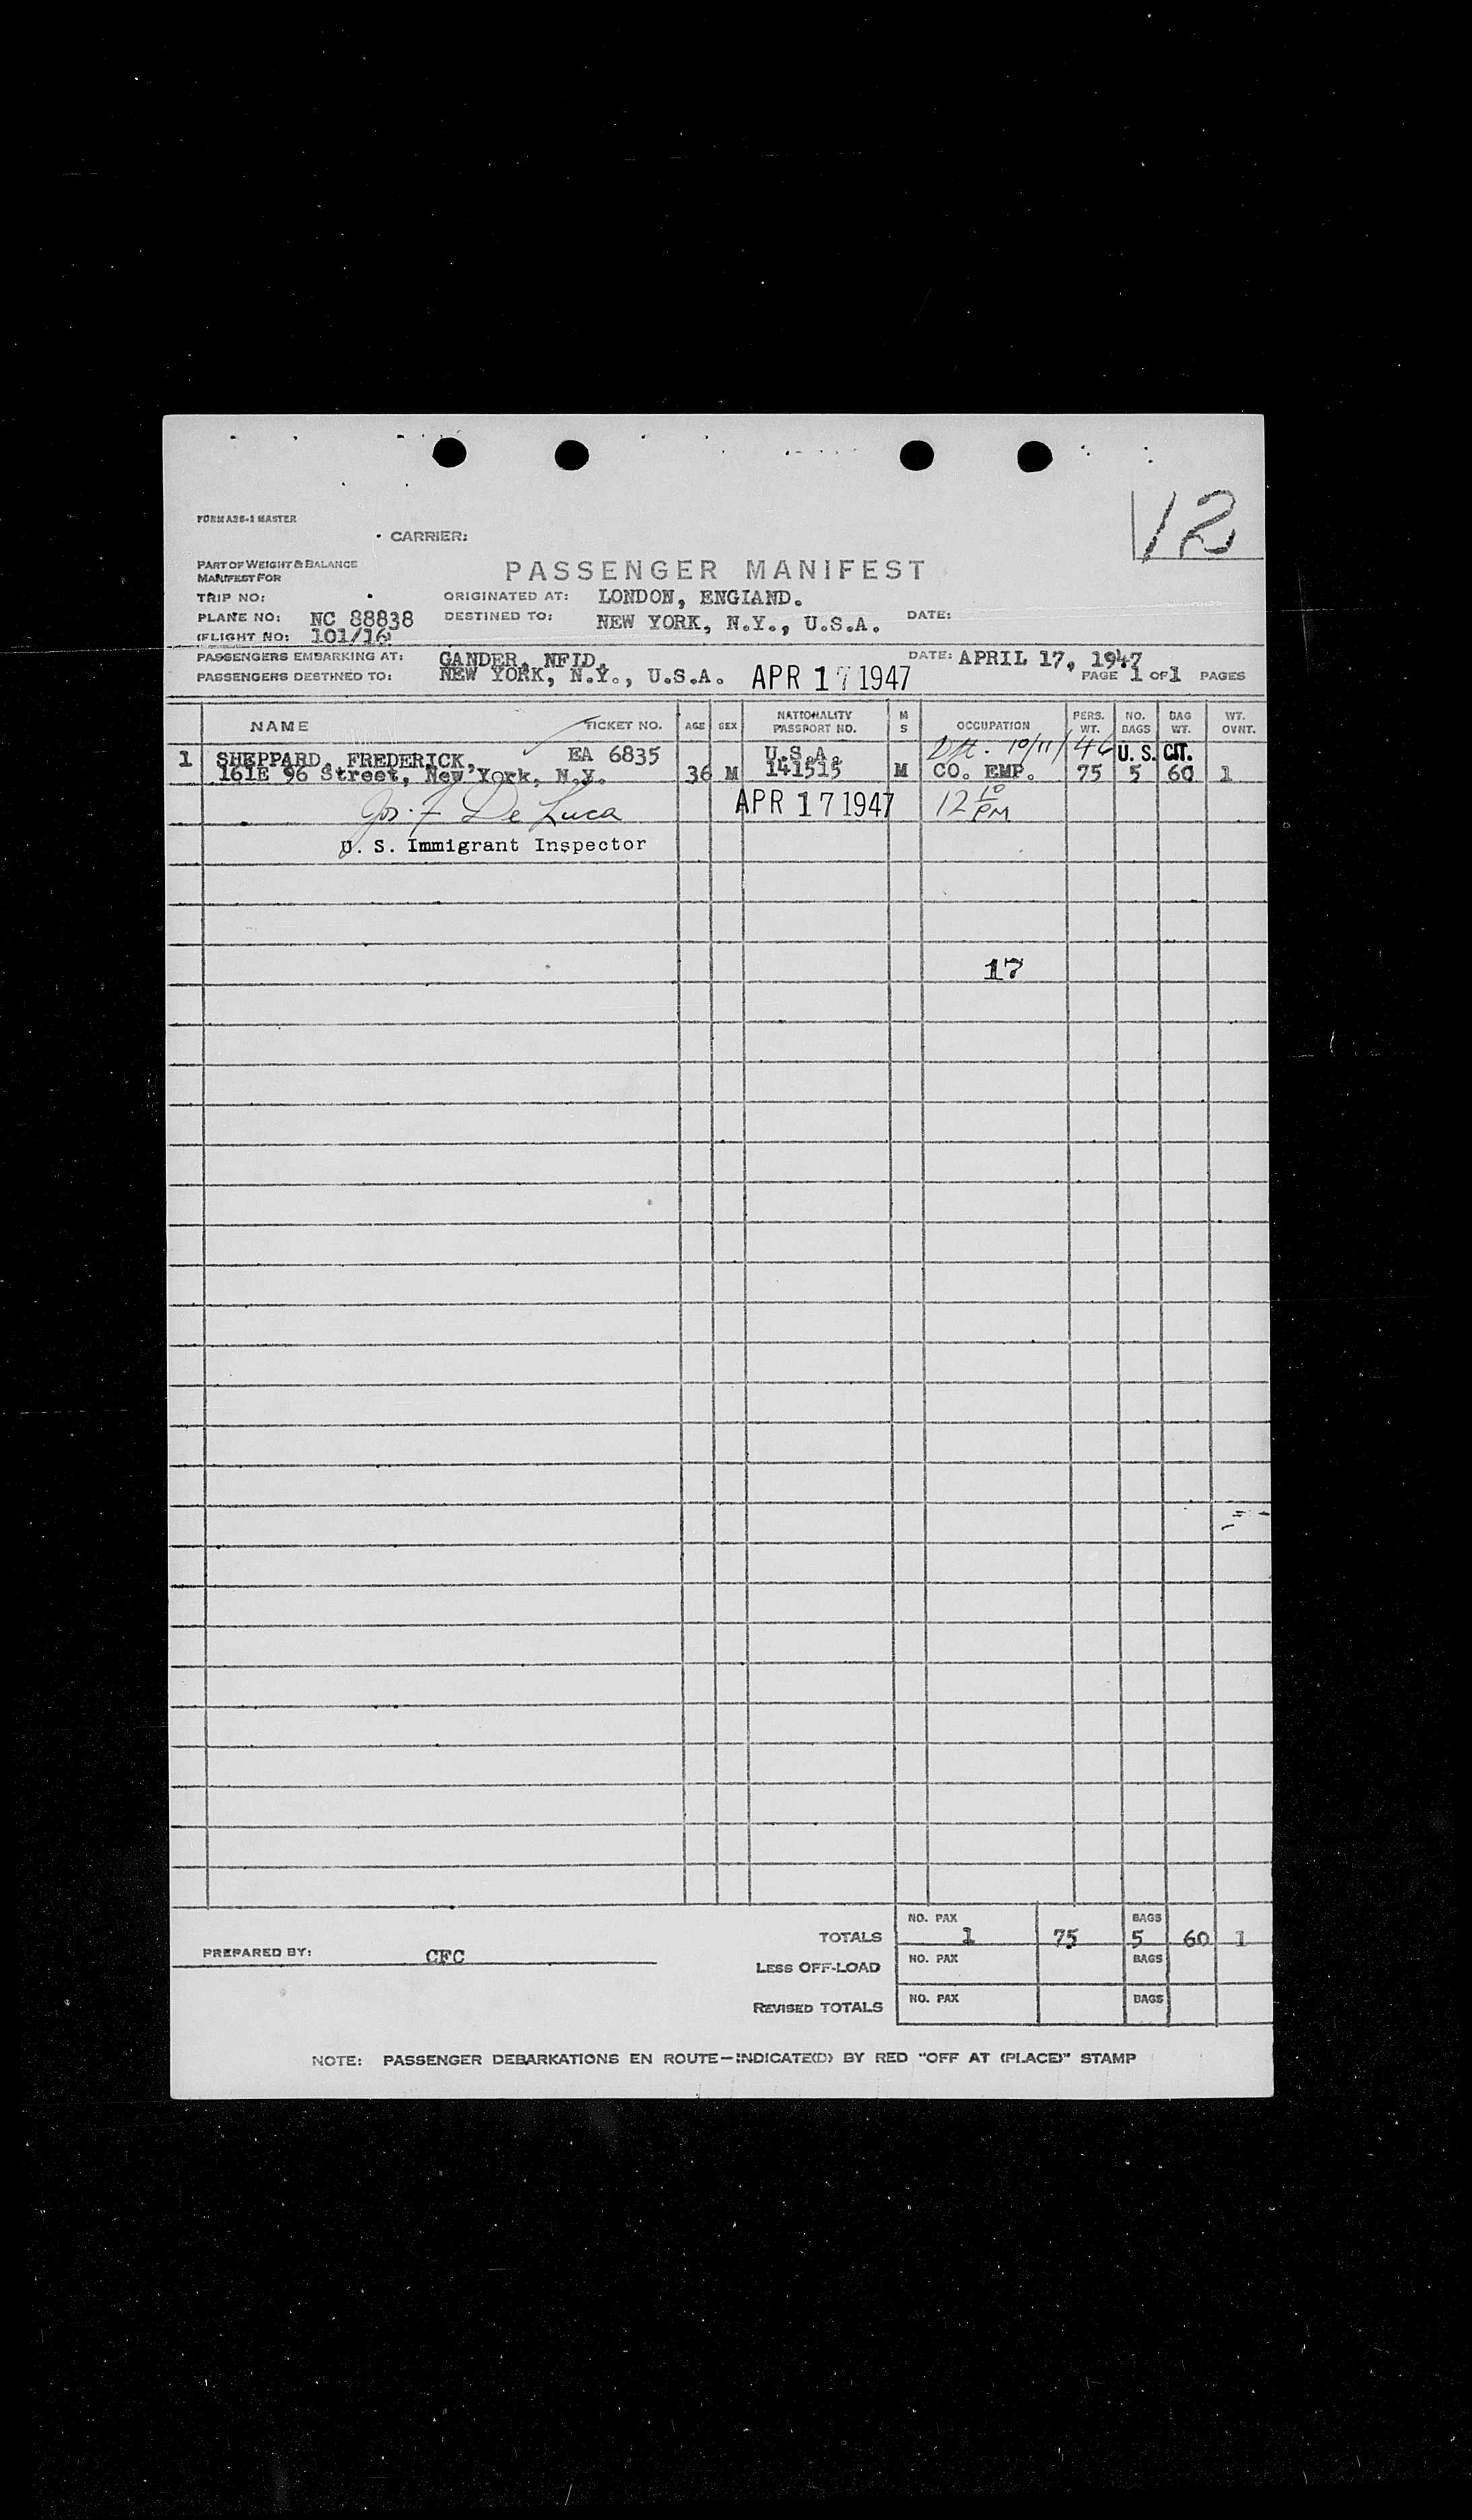 12
FORM A36-1 MASTER
CARRIER:
PART OF WEIGHT & BALANCE
MANIFEST FOR
PASSENGER MANIFEST
TRIP NO:
ORIGINATED AT: LONDON, ENGLAND.
PLANE NO: NC 88838
DESTINED TO: NEW YORK, N.Y., U.S.A. DATE:
(FLIGHT NO: 101/16
PASSENGERS EMBARKING AT: GANDER, NFLD. DATE: APRIL 17, 1947
PASSENGERS DESTINED TO: NEW YORK, N.Y., U.S.A. APR 17 1947 PAGE 1 OF 1 PAGES
NAME TICKET NO. AGE SEX NATIONALITY PASSPORT NO. M S OCCUPATION PERS. WT. NO. BAGS BAG WT. WT. OVNT.
1 SHEPPARD, FREDERICK, EA 6835 U.S.A. 10/11/46 U. S. CIT.
161E 96 Street, New York, N.Y. 36 M 141515 M CO. EMP. 75 5 60 1
Jos. F De Luca APR 17 1947 12 10 PM
U. S. Immigrant Inspector
17
NO. PAX BAGS
TOTALS 1 75 5 60 1
PREPARED BY: CFC
LESS OFF-LOAD NO. PAX BAGS
REVISED TOTALS NO. PAX BAGS
NOTE: PASSENGER DEBARKATIONS EN ROUTE—INDICATE(D) BY RED "OFF AT (PLACE)" STAMP